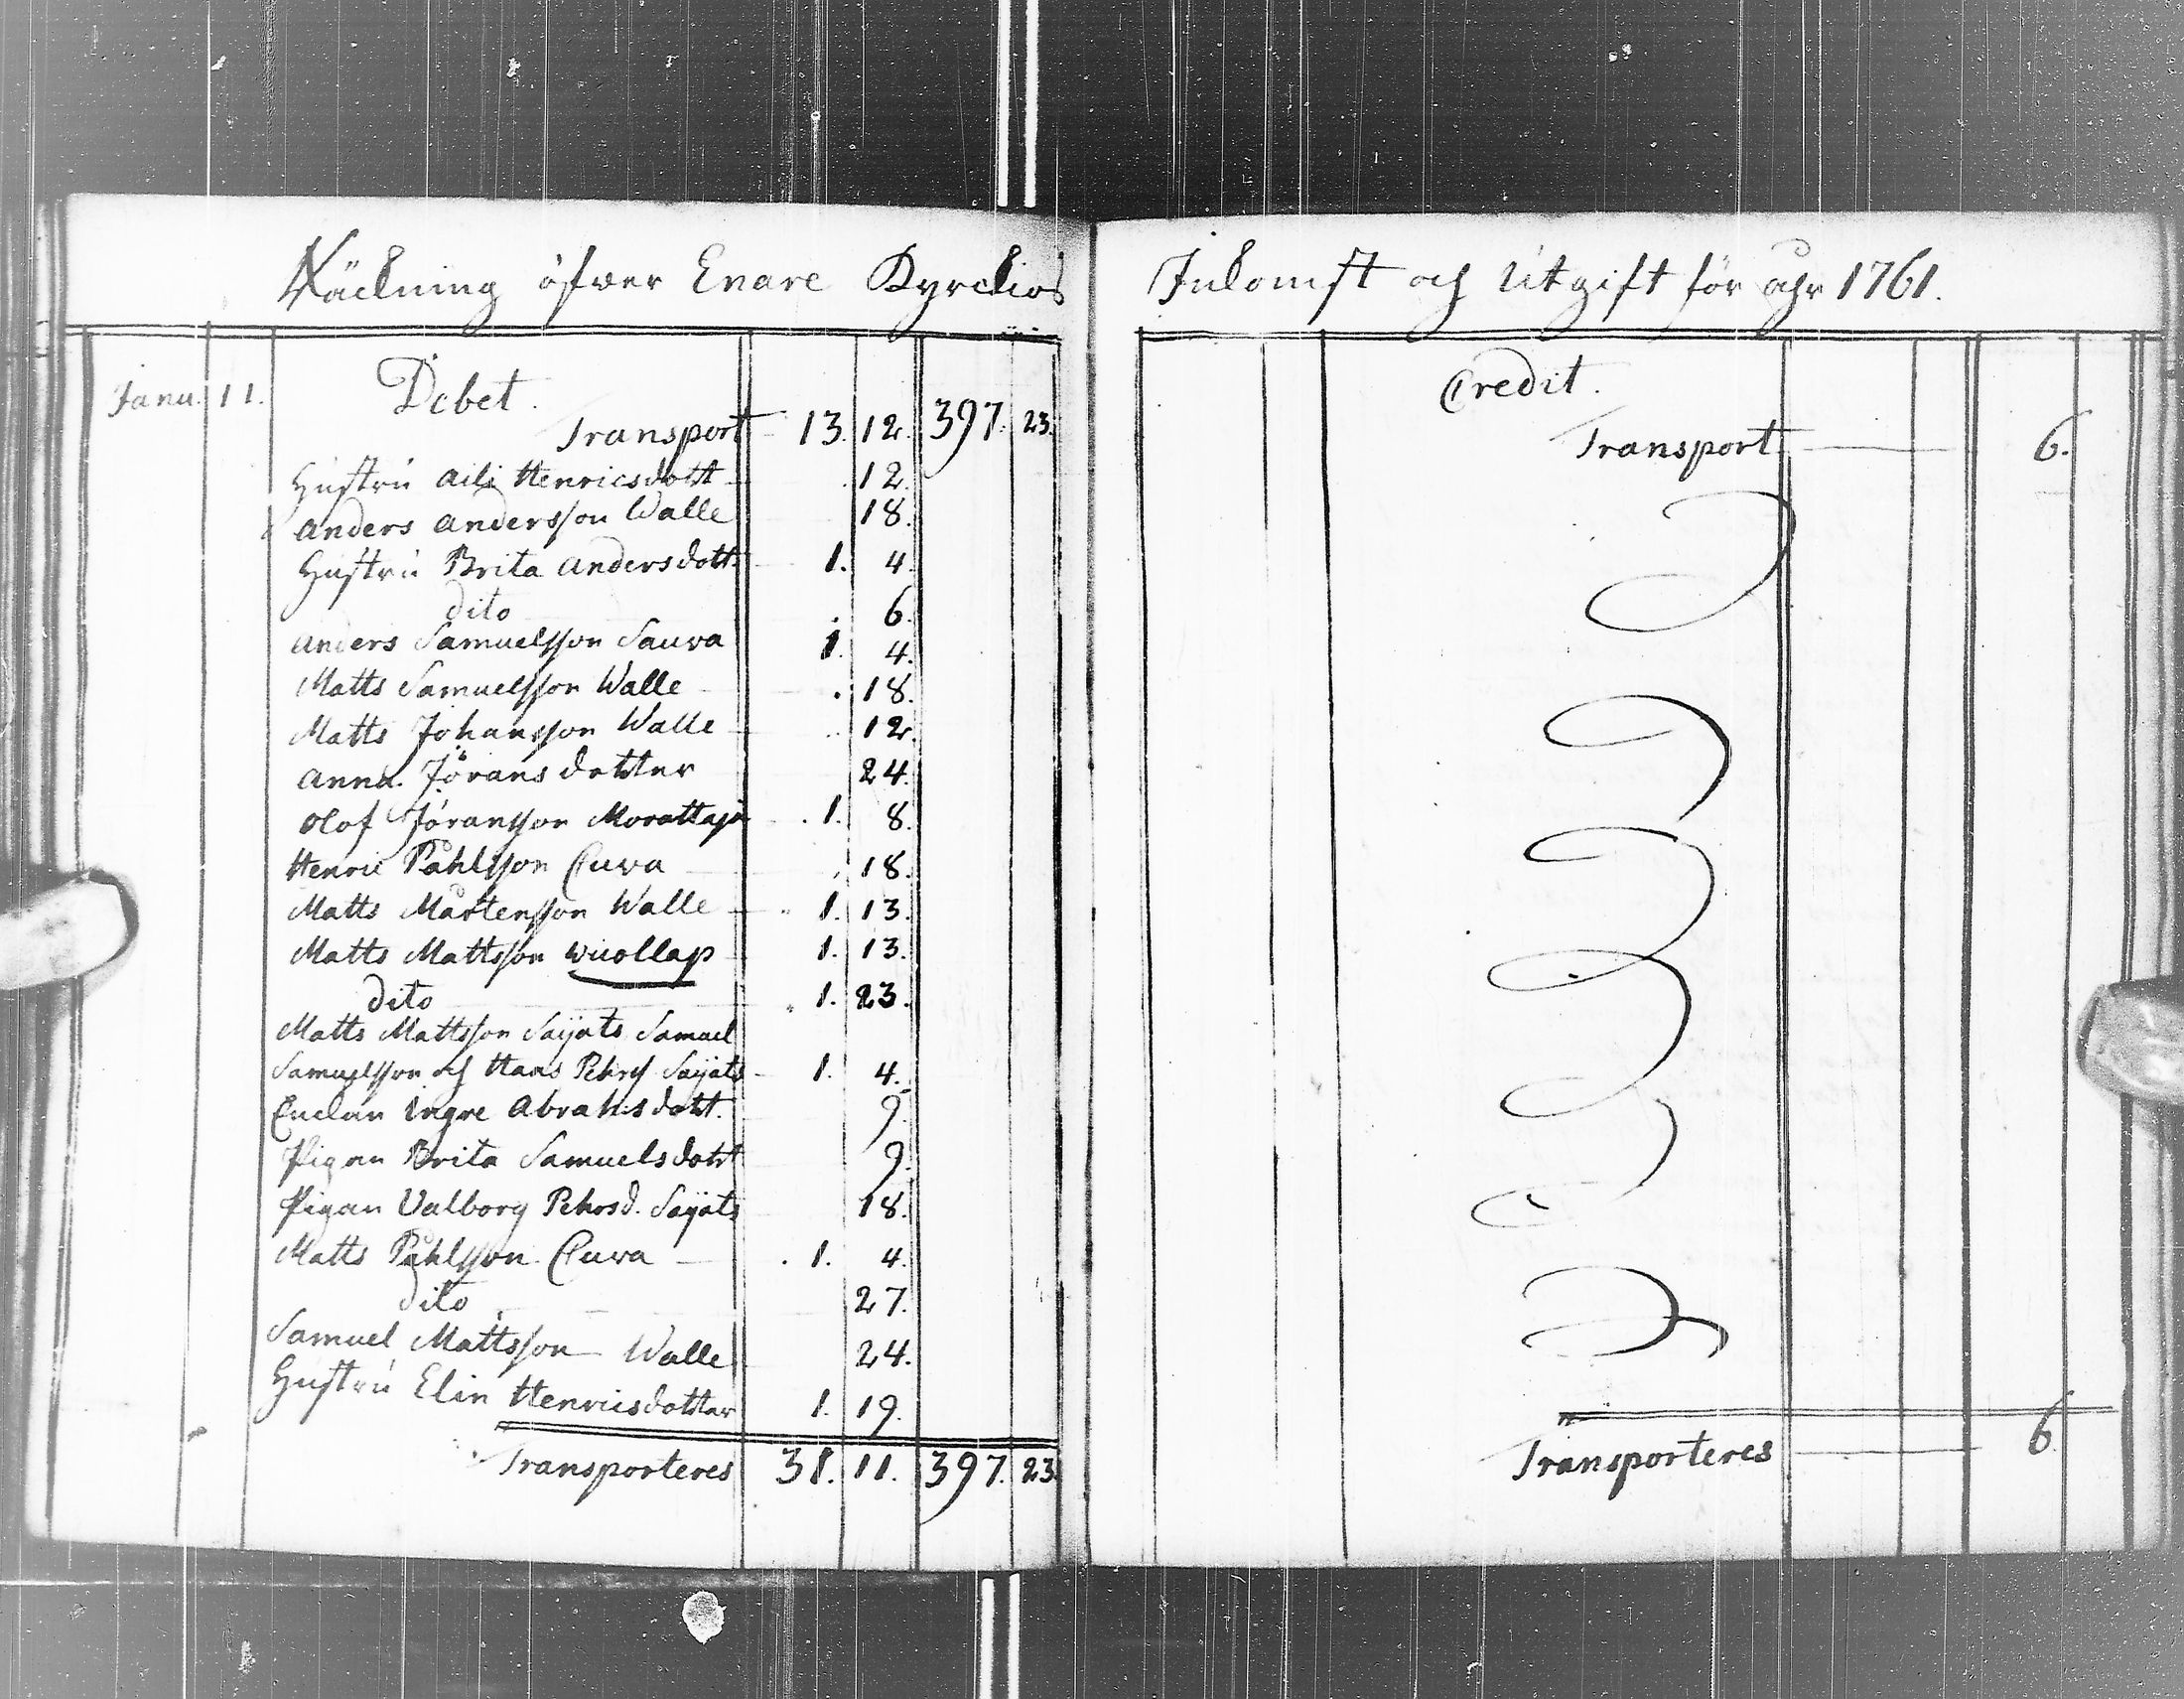 Räckning öfwer Enare Kyrckios
Debet.
Janu. 11.
Transport 13. 12. 397. 23.
Hustru Aili Henricsdott 12.
Anders Andersson Walle 18.
Hustru Brita Andersdott. 1. 4.
dito 6.
Anders Samuelsson Sauva 1. 4.
Matts Samuelsson Walle 18.
Matts Johansson Walle 12.
Anna Jöransdotter 24.
Olof Jöransson Morattaja 1. 8.
Henric Påhlsson Cuva 18.
Matts Mårtensson Walle 1. 13.
Matts Mattsson Wuollap 1. 13.
dito 1. 23.
Matts Mattsson Saijets Samuel
Samuelsson och Hans Pehrs Saijets 1. 4.
Enckan Ingre Abrahsdott. 9.
Pigan Brita Samuelsdott 9.
Pigan Valborg Pehrsd. Saijets 18.
Matts Påhlsson Cuva 1. 4.
dito 27.
Samuel Mattsson Walle 24.
Hustru Elin Henricsdotter 1. 19.
Transporteres 31. 11. 397. 23.
Inkomst och Utgift för åhr 1761.
Credit.
Transport 6.
Transporteres 6.